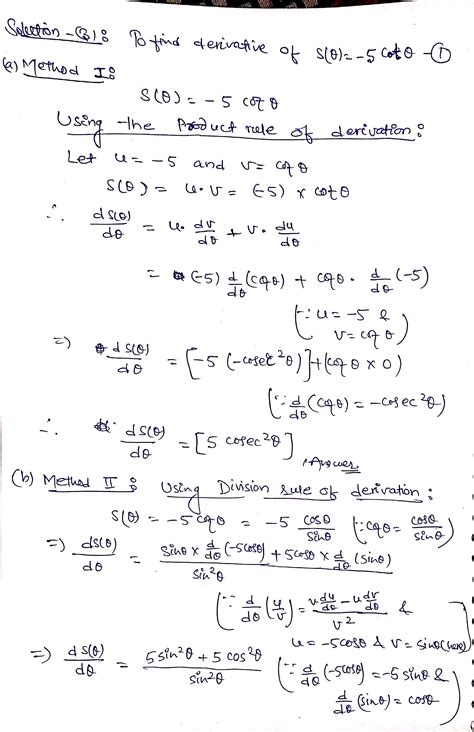 Solution-(3): To find derivative of s(θ)=-5 cotθ -①
(a) Method I:
s(θ) = -5 cotθ
Using the Product rule of derivation:
Let u = -5 and v = cotθ
s(θ) = u.v = (-5) x cotθ
∴ ds(θ)/dθ = u. dv/dθ + v. du/dθ
= (-5) d/dθ (cotθ) + cotθ . d/dθ (-5)
(∵ u = -5 &
v = cotθ)
=) ds(θ)/dθ = [-5 (-cosec²θ)] + (cotθ x 0)
(∵ d/dθ (cotθ) = -cosec²θ)
∴ ds(θ)/dθ = [5 cosec²θ]
Answer
(b) Method II: Using Division rule of derivation:
s(θ) = -5 cotθ = -5 cosθ/sinθ (∵ cotθ = cosθ/sinθ)
=) ds(θ)/dθ = sinθ x d/dθ (-5cosθ) + 5cosθ x d/dθ (sinθ) / sin²θ
(∵ d/dθ (u/v) = v du/dθ - u dv/dθ / v² &
u = -5cosθ & v = sinθ (here))
=) ds(θ)/dθ = 5 sin²θ + 5 cos²θ / sin²θ (∵ d/dθ (-5cosθ) = -5 sinθ &
d/dθ (sinθ) = cosθ)